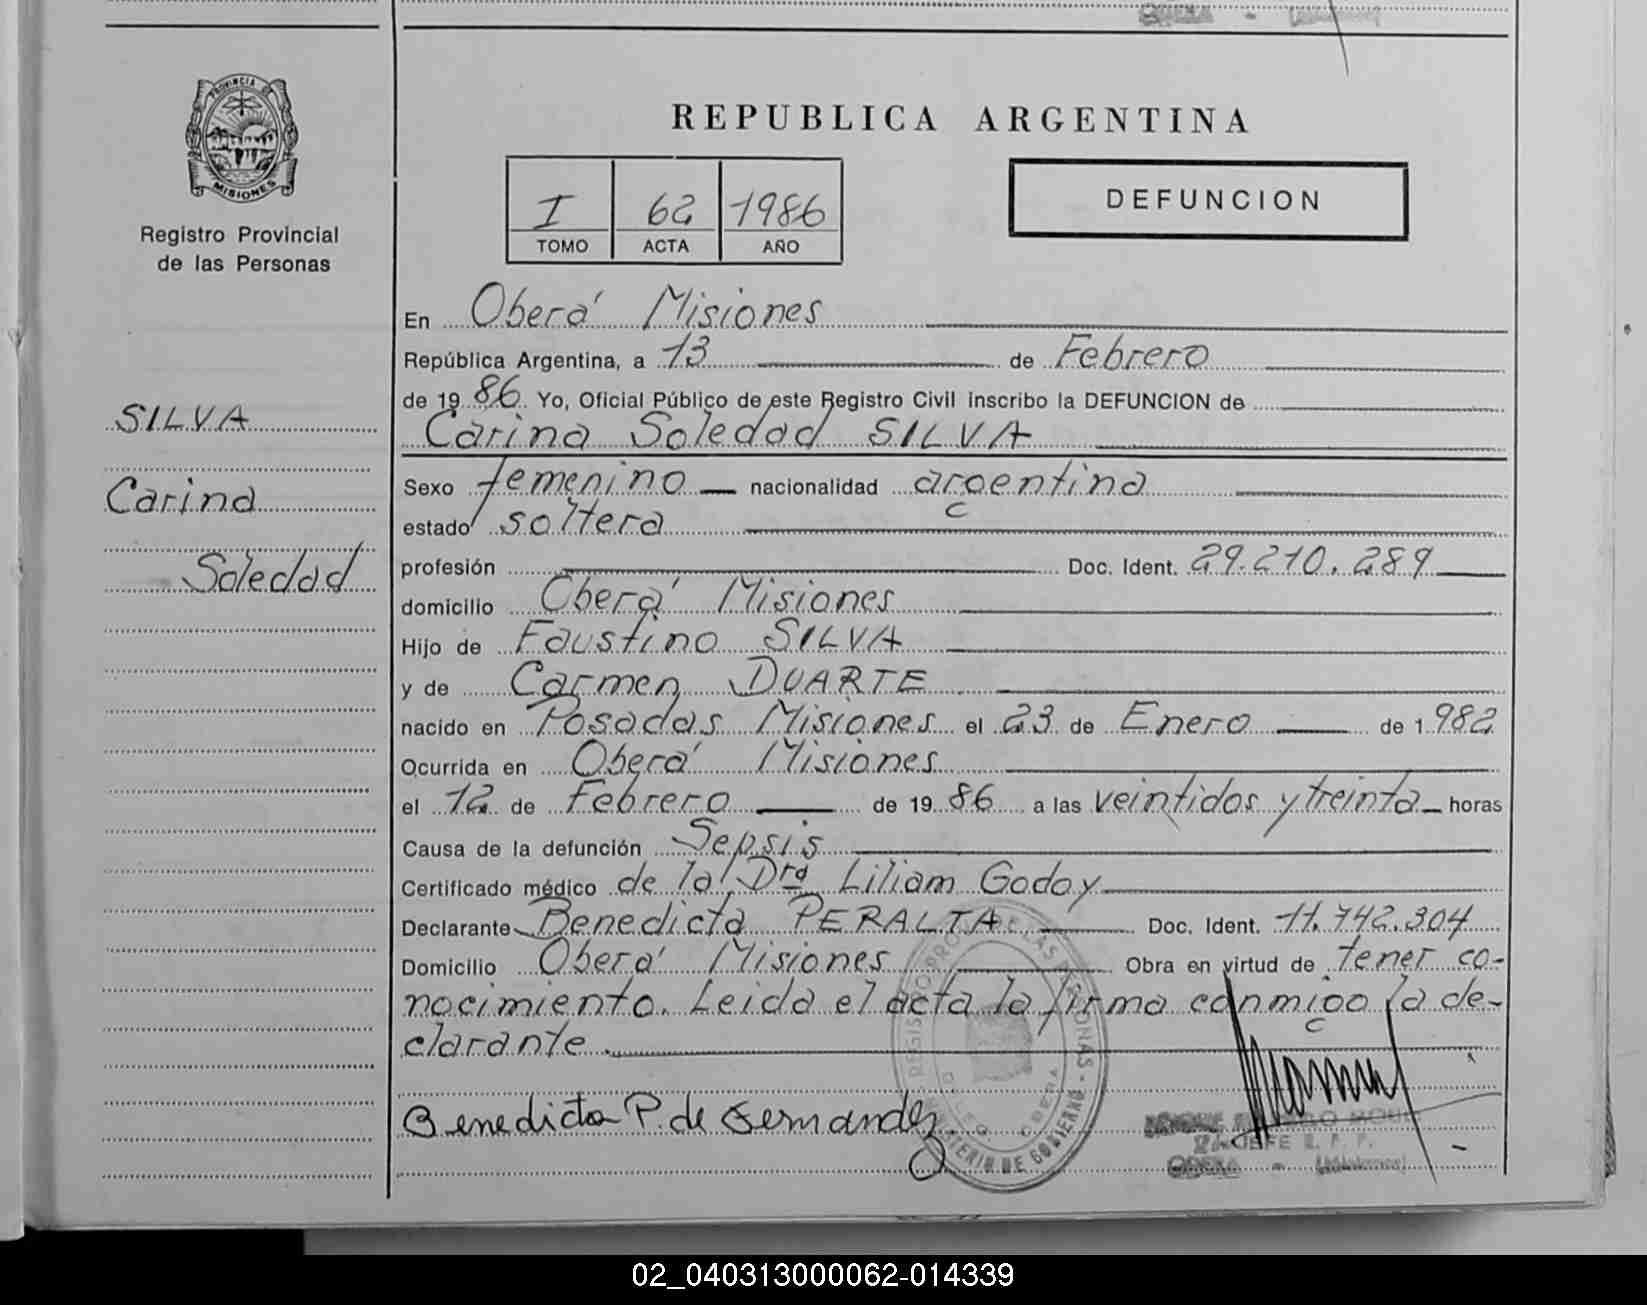 PROVINCIA DE
MISIONES
Registro Provincial
de las Personas
SILVA
Carina
Soledad
REPUBLICA ARGENTINA
I 62 1986
TOMO ACTA AÑO
DEFUNCION
En Oberá Misiones
República Argentina, a 13 de Febrero
de 1986 Yo, Oficial Público de este Registro Civil inscribo la DEFUNCION de
Carina Soledad SILVA
Sexo femenino nacionalidad argentina
estado soltera
profesión Doc. Ident. 29.210.289
domicilio Oberá Misiones
Hijo de Faustino SILVA
y de Carmen DUARTE
nacido en Posadas Misiones el 23 de Enero de 1982
Ocurrida en Oberá Misiones
el 12 de Febrero de 1986 a las veintidos y treinta horas
Causa de la defunción Sepsis
Certificado médico de la Dra Liliam Godoy
Declarante Benedicta PERALTA Doc. Ident. 11.742.304
Domicilio Oberá Misiones Obra en virtud de tener co-
nocimiento. Leida el acta la firma conmigo la de-
clarante.
Benedicta P. de Fernandez
MINISTERIO DE GOBIERNO
JEFE R. P. P.
OBERA - (Misiones)
02_040313000062-014339